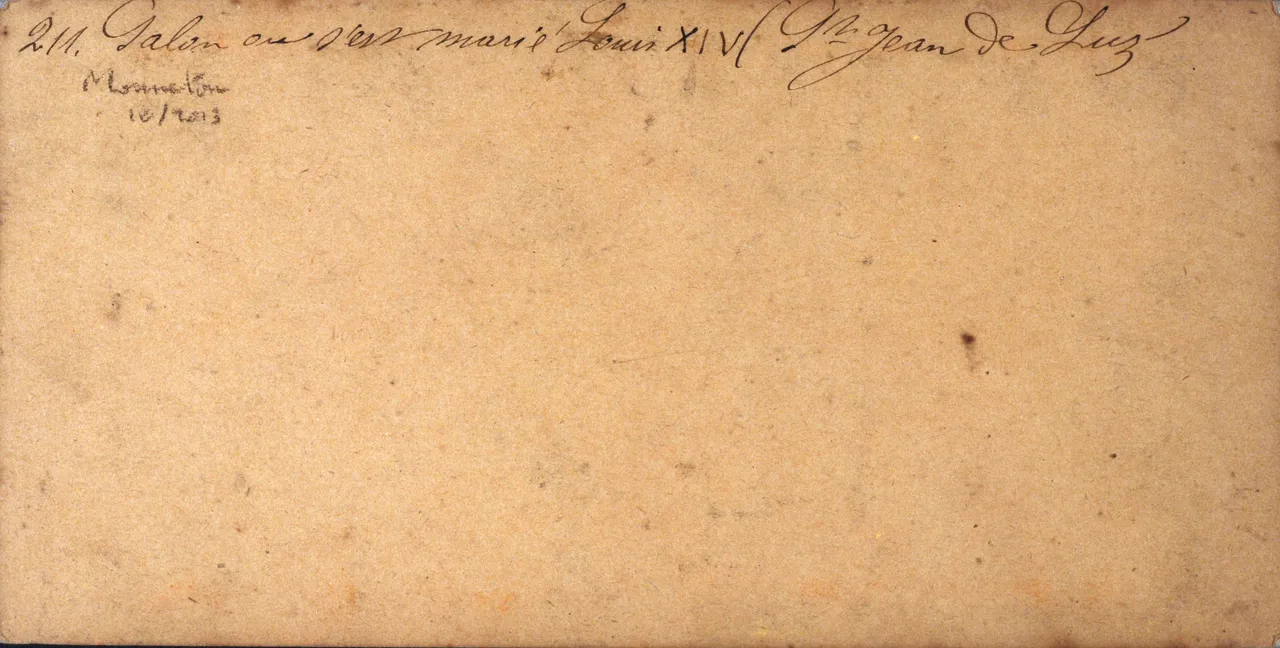 211. Salon ou s'est marié Louis XIV ( St Jean de Luz
Monneton
10/2013